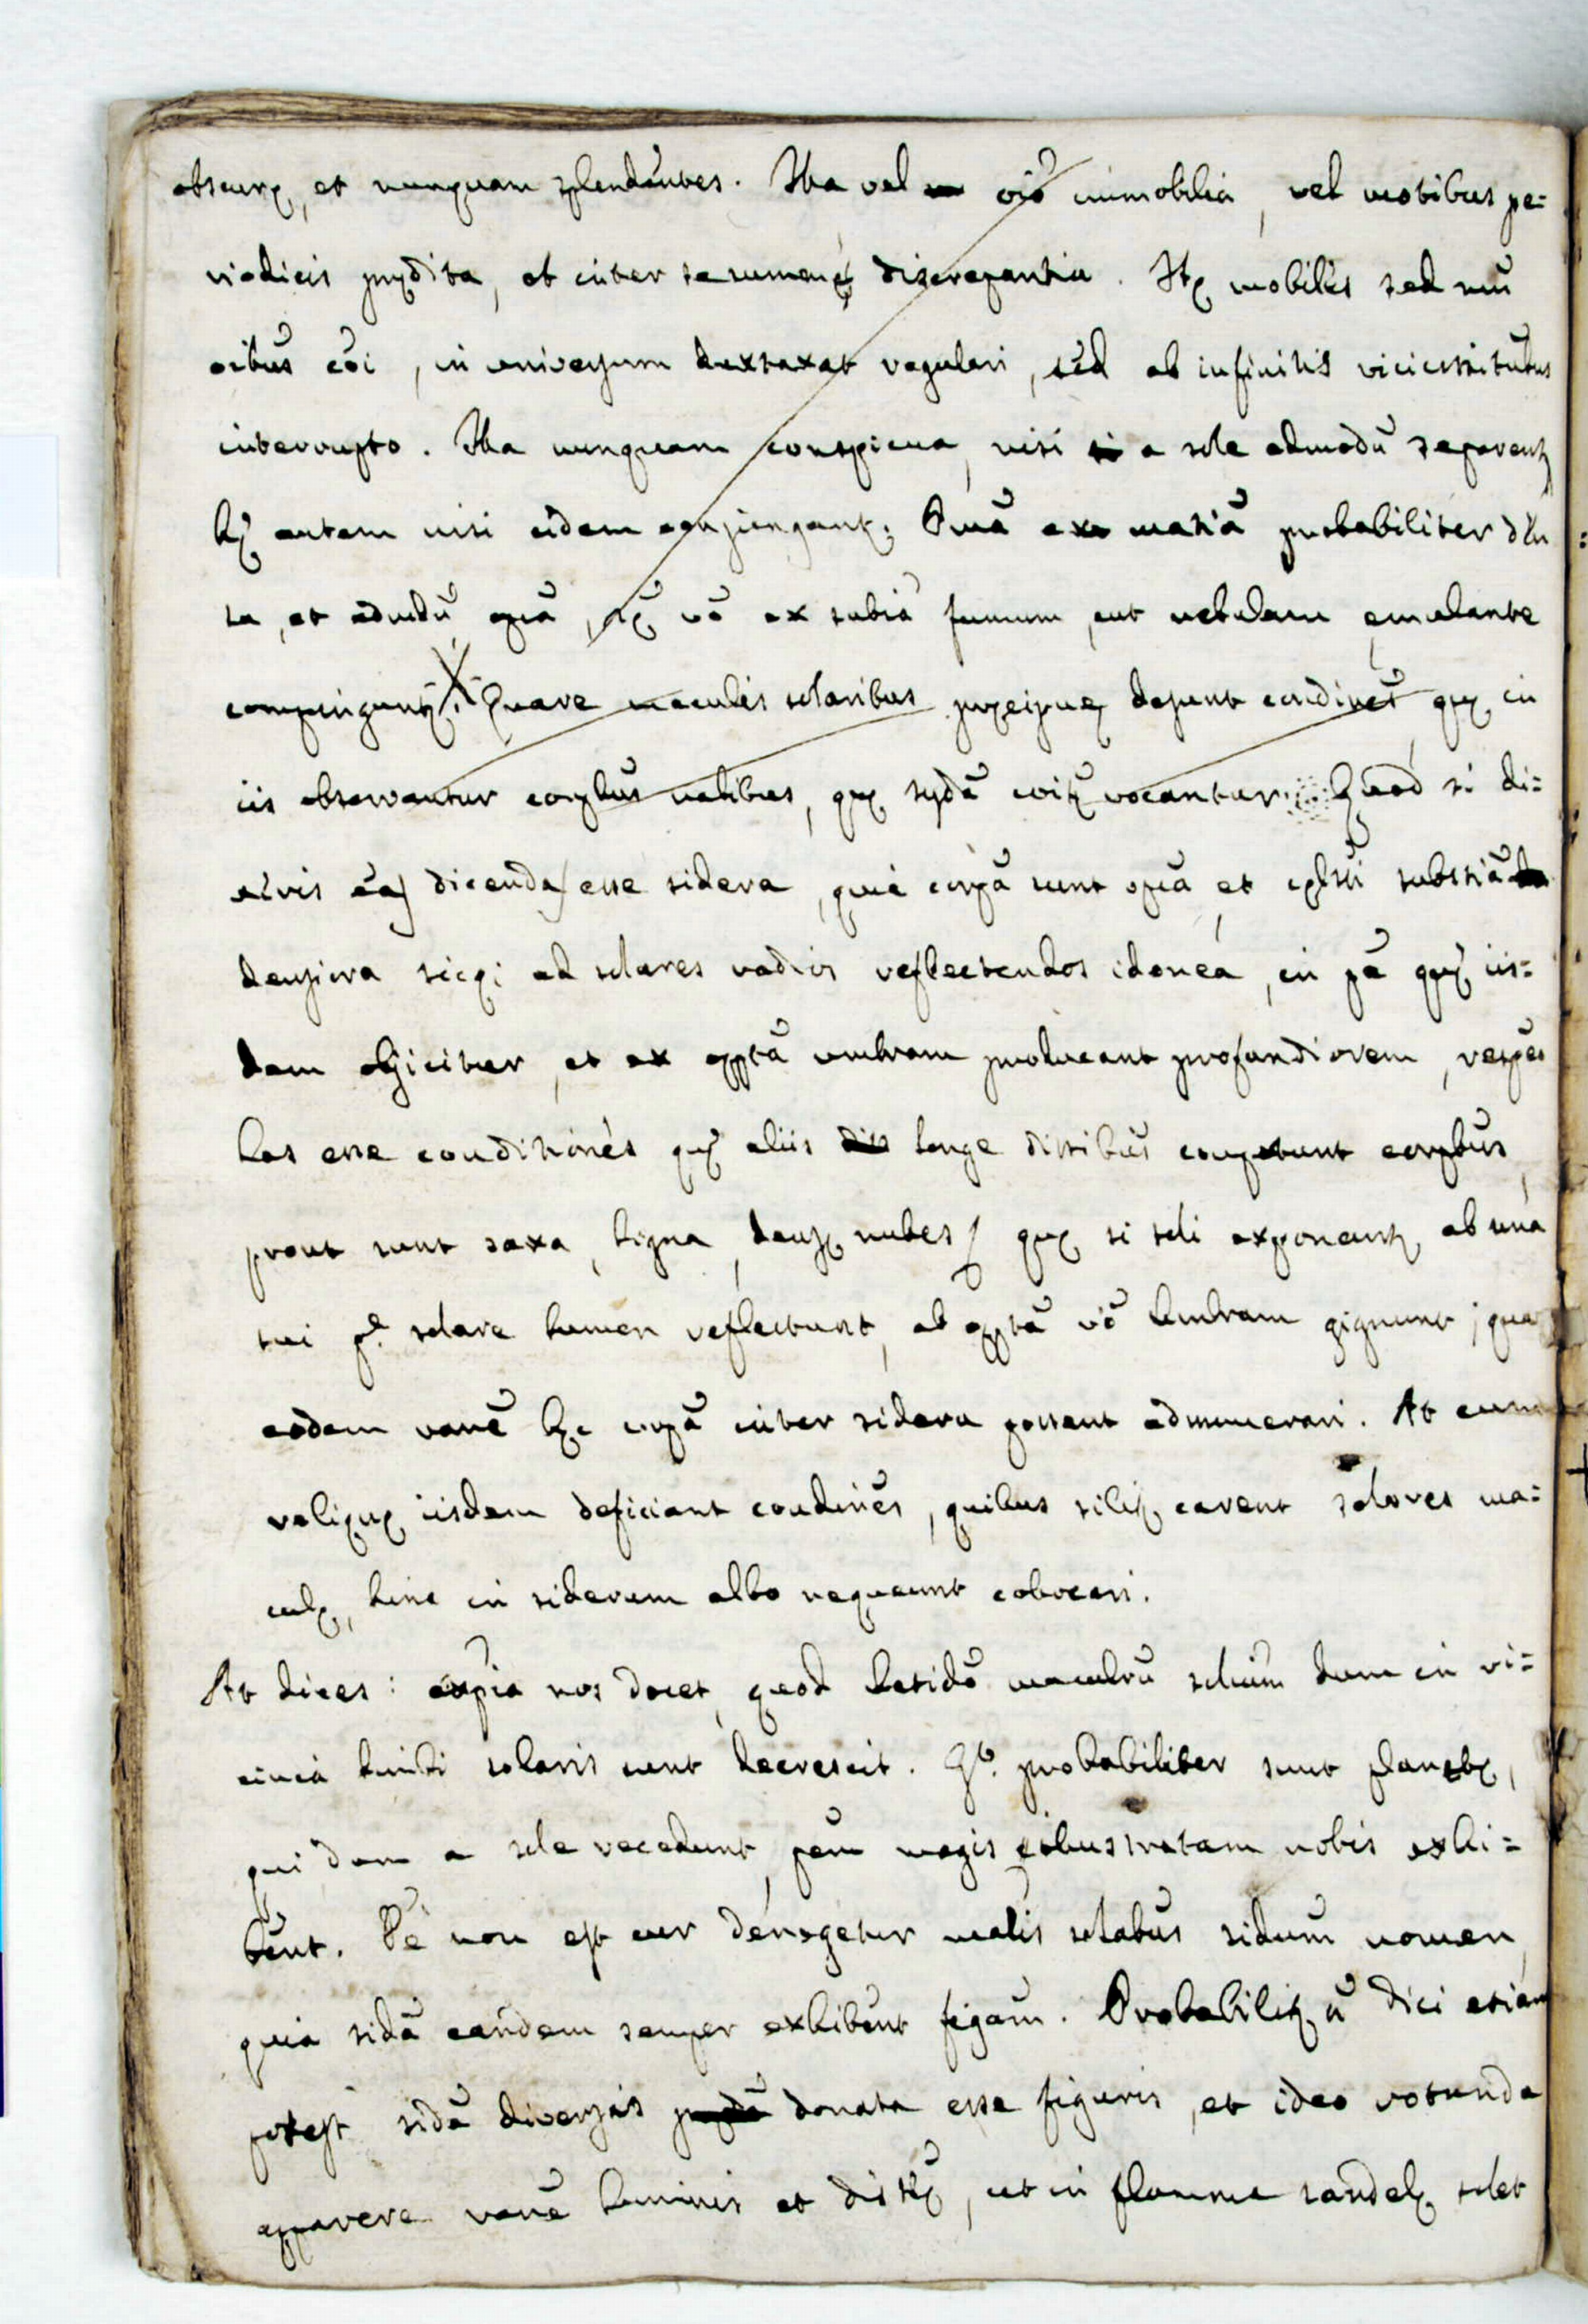 obscuræ, et nunquam splendentes. Illa vel oīo immobilia, vel motibus pe=
riodicis prędita, et inter se summe discrepantia. Hę mobiles sed mū
oibus cōi, in universum duxtaxat regulari, sed ab infinitis vicissitudūs
interrupto. Illa nunquam conspicua, nisi a sole admodū separentʒ
hę autem nisi eidem conjungantʒ. Omā ex matiā probabiliter dū
sa, et admdū opā, hę vō ex subiā fumum, aut nebulam ęmulante
compinguntʒ. Quare maculis solaribus pręcipuę desunt condinēs quę in
iis observantur corpbus uatibus, quę sydā coitʒ vocantur. Quod si di=
xeris eas dicendas esse sidera, quia corpā sunt opcā et cęlsti substiā
densiora sicq; ad solares radios reflectendos idonea, in pē quę iis=
dem objicitur, et ex opptā umbram producant profundiorem, respeo
has esse conditiones quę aliis longe dissibus competunt corpbus,
prout sunt saxa, ligna, densę nubes, quę si soli exponantʒ ab unā
sui pe solare lumen reflectunt, ab opptā vō umbram gignunt; qua
eodem ronē hęc corpā inter sidera possent adnumerari. At cum
reliquę iisdem deficiant condinēs, quibus silitʒ carent solares ma=
culę, hinc in siderum albo nequeunt collocari.
At dices: expīa nos docet, quod latidō maculrū soliūm dum in vi=
cinia limbi solaris sunt decrescit. Qo. probabiliter sunt planetę,
qui dum a sole recedunt, pem magis illustratam nobis exhi=
bent. Pē non est cur denegetur malis solabus sidum nomen,
quia sidā eandem semper exhibent figam. Probabilitʒ n̄ dici etiam
potest sidā diversis donata esse figuris, et ideo rotunda
apparere ronē luminis et distię, ut in flamma candelę solet